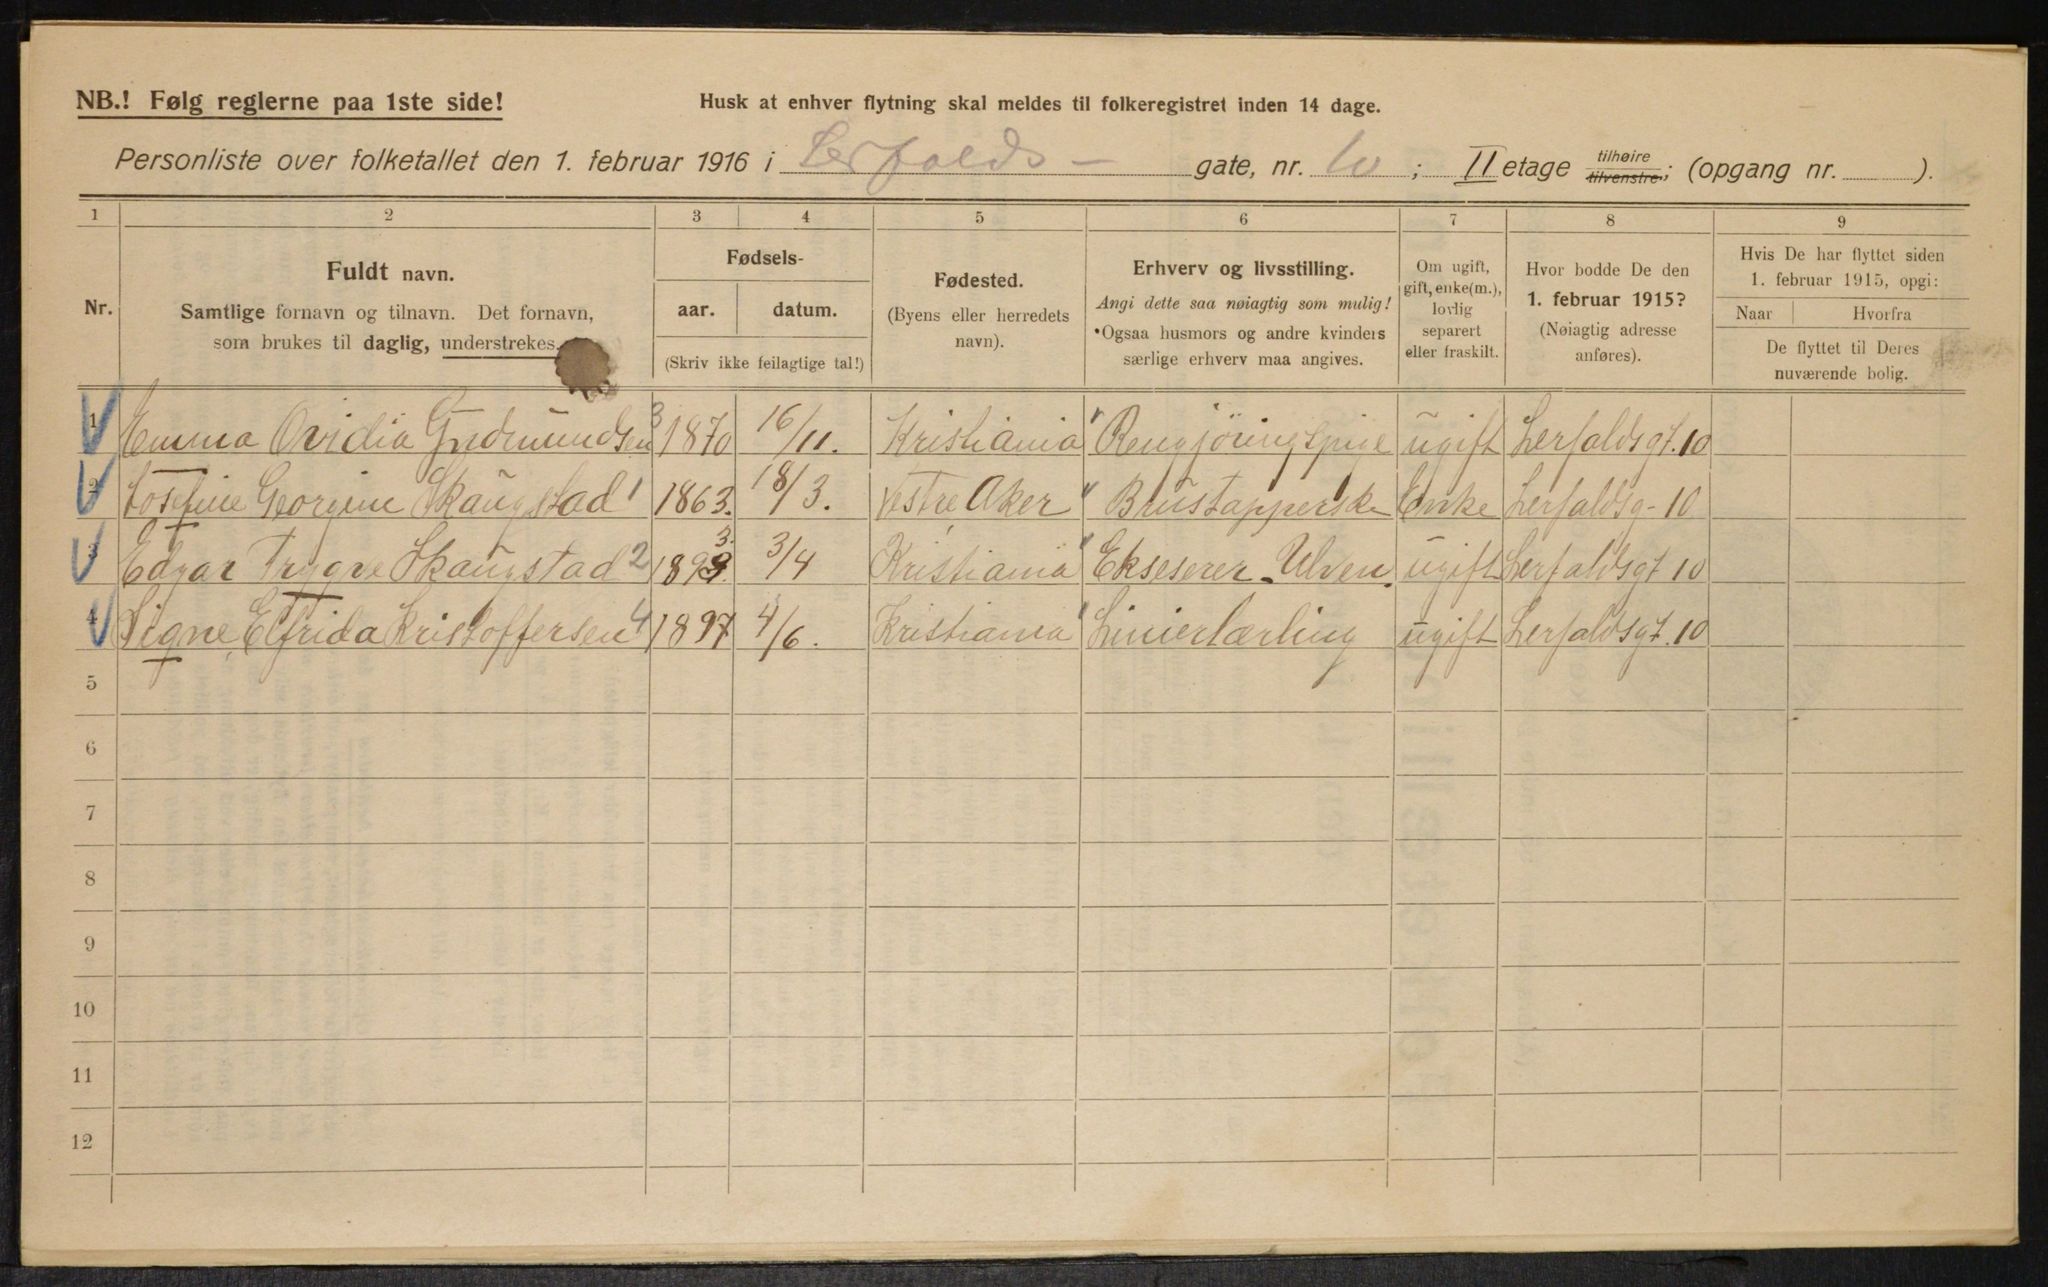 NB.! Følg reglerne paa 1ste side! Husk at enhver flytning skal meldes til folkeregistret inden 14 dage.
Personliste over folketallet den 1. februar 1916 i Lerfalds- gate, nr. 10; II etage tilhøire tilvenstre; (opgang nr. ).
1 2 3 4 5 6 7 8 9
Nr.
Fuldt navn.
Samtlige fornavn og tilnavn. Det fornavn,
som brukes til daglig, understrekes.
Fødsels-
aar. datum.
(Skriv ikke feilagtige tal!)
Fødested.
(Byens eller herredets
navn).
Erhverv og livsstilling.
Angi dette saa nøiagtig som mulig!
*Ogsaa husmors og andre kvinders
særlige erhverv maa angives.
Om ugift,
gift, enke(m.),
lovlig
separert
eller fraskilt.
Hvor bodde De den
1. februar 1915?
(Nøiagtig adresse
anføres).
Hvis De har flyttet siden
1. februar 1915, opgi:
Naar Hvorfra
De flyttet til Deres
nuværende bolig.
1 Emma Ovidia Gudmundsen 3 1870 16/11. Kristiania Rengjöringspige ugift Lerfaldsgt. 10
2 Josefine Georgine Skaugstad 1 1863. 18/3. Vestre Aker Brustapperske Enke Lerfaldsg- 10
3 Edgar Trygve Skaugstad 2 1893. 3/4 Kristiania Ekseserer-Ulven. ugift Lerfaldsgt 10
4 Signe Elfrida Kristoffersen 4 1897 4/6. Kristiania Linierlærling ugift Lerfaldsgt. 10
5
6
7
8
9
10
11
12